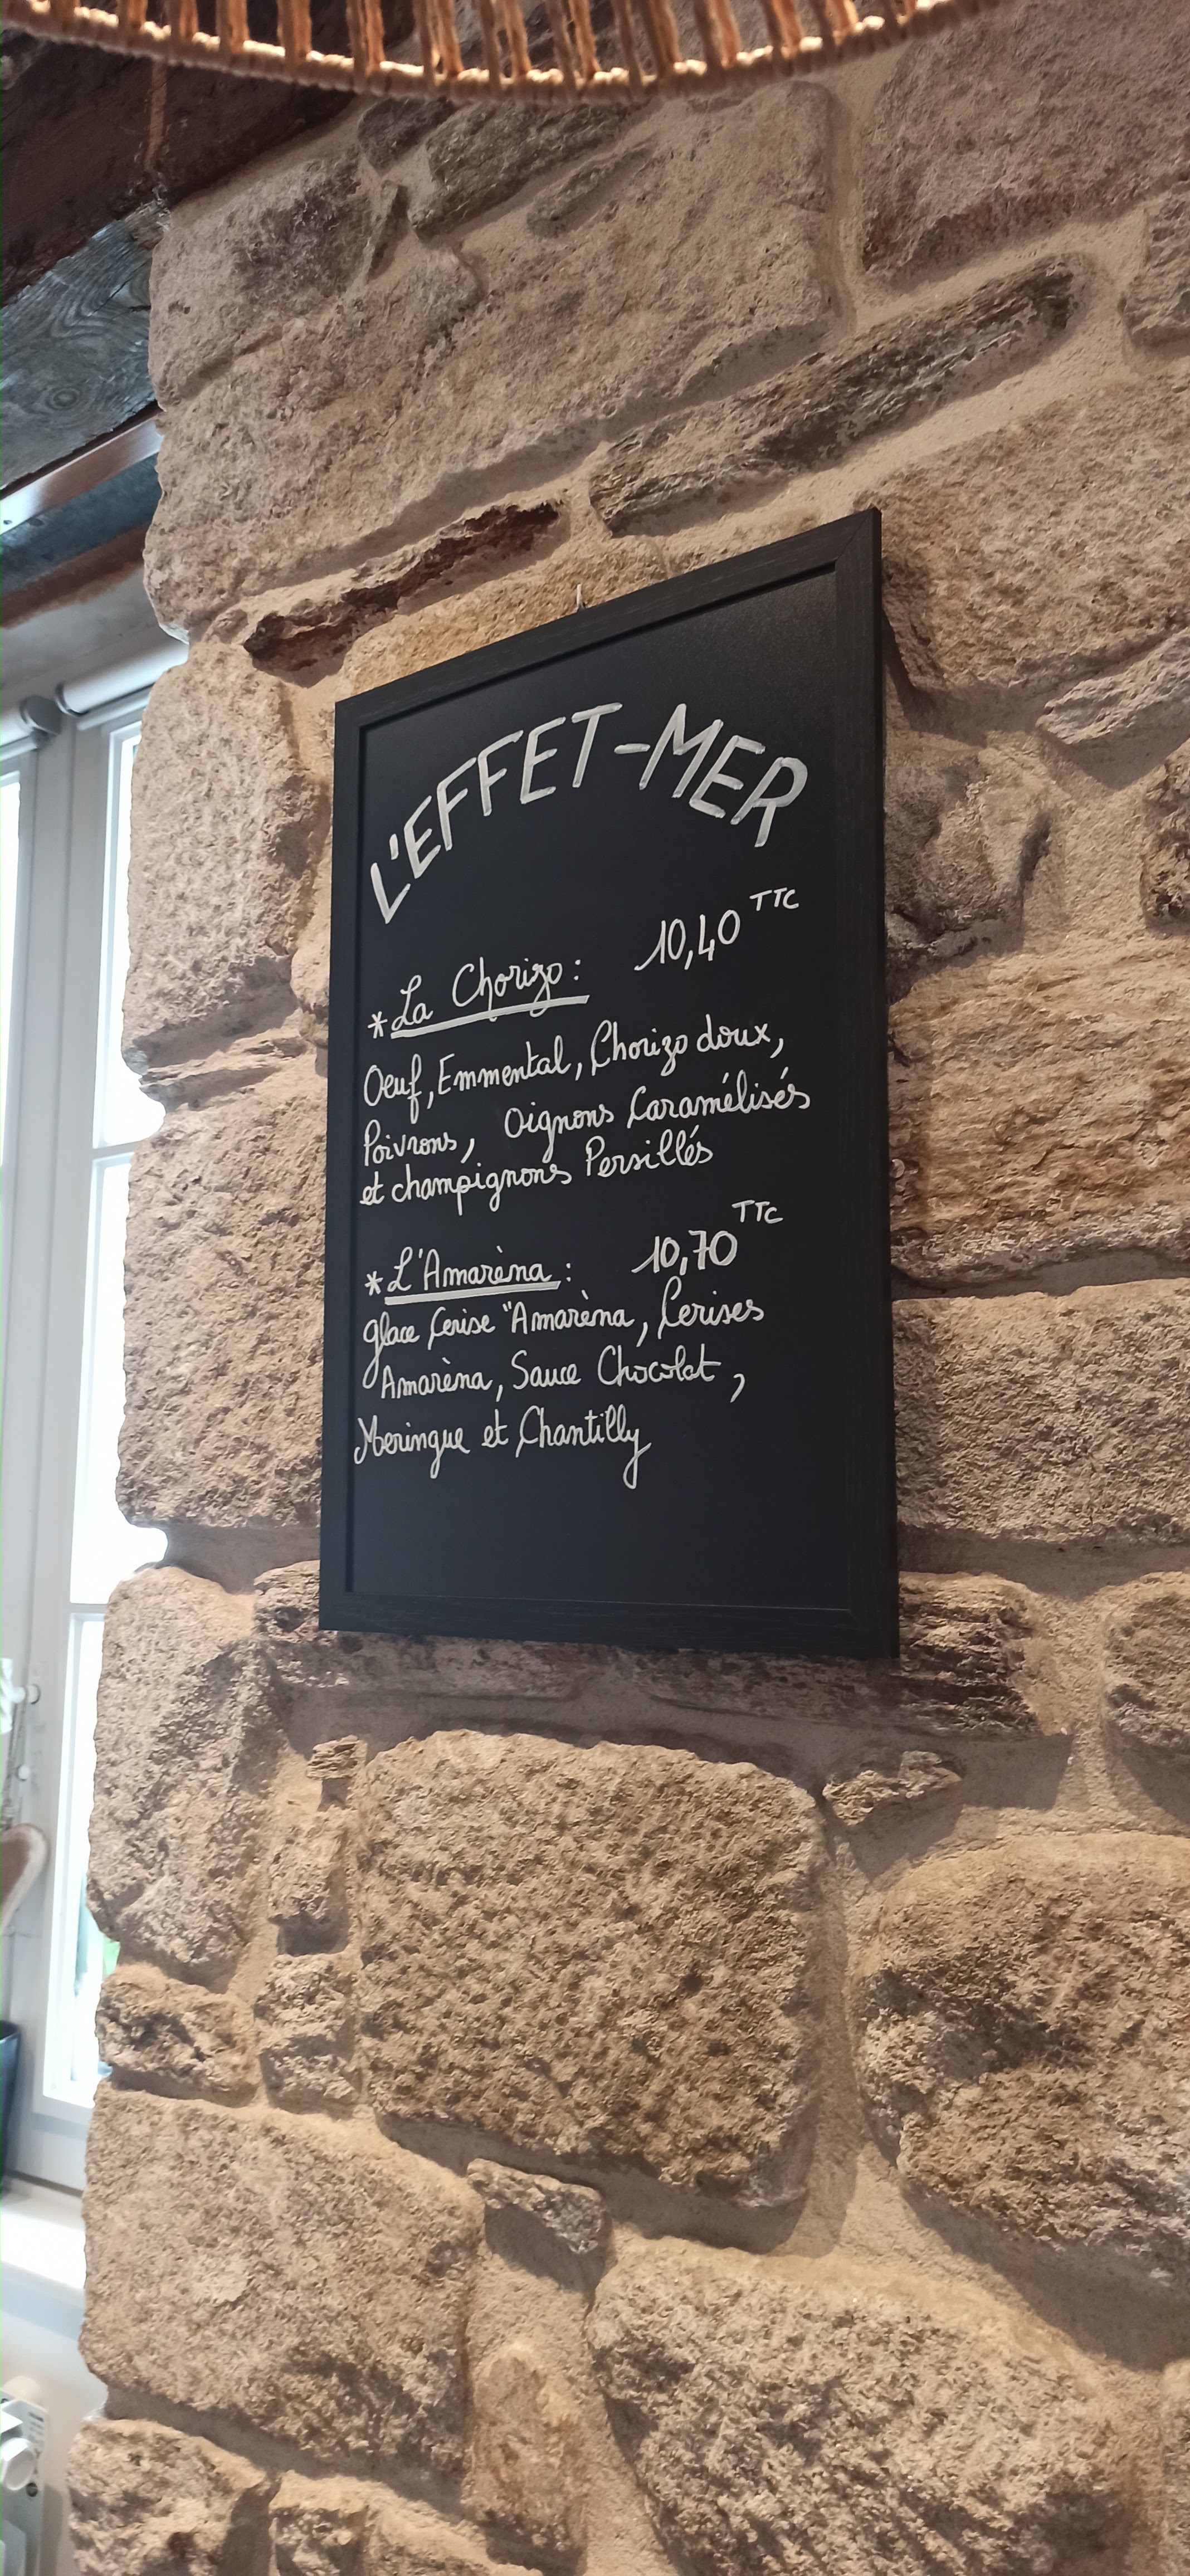 L'EFFET-MER
*La Chorizo : 10,40 TTC
Oeuf, Emmental, Chorizo doux,
Poivrons, Oignons Caramélisés
et champignons Persillés
*L'Amarèna : 10,70 TTC
glace Cerise "Amarèna, Cerises
Amarèna, Sauce Chocolat,
Meringue et Chantilly